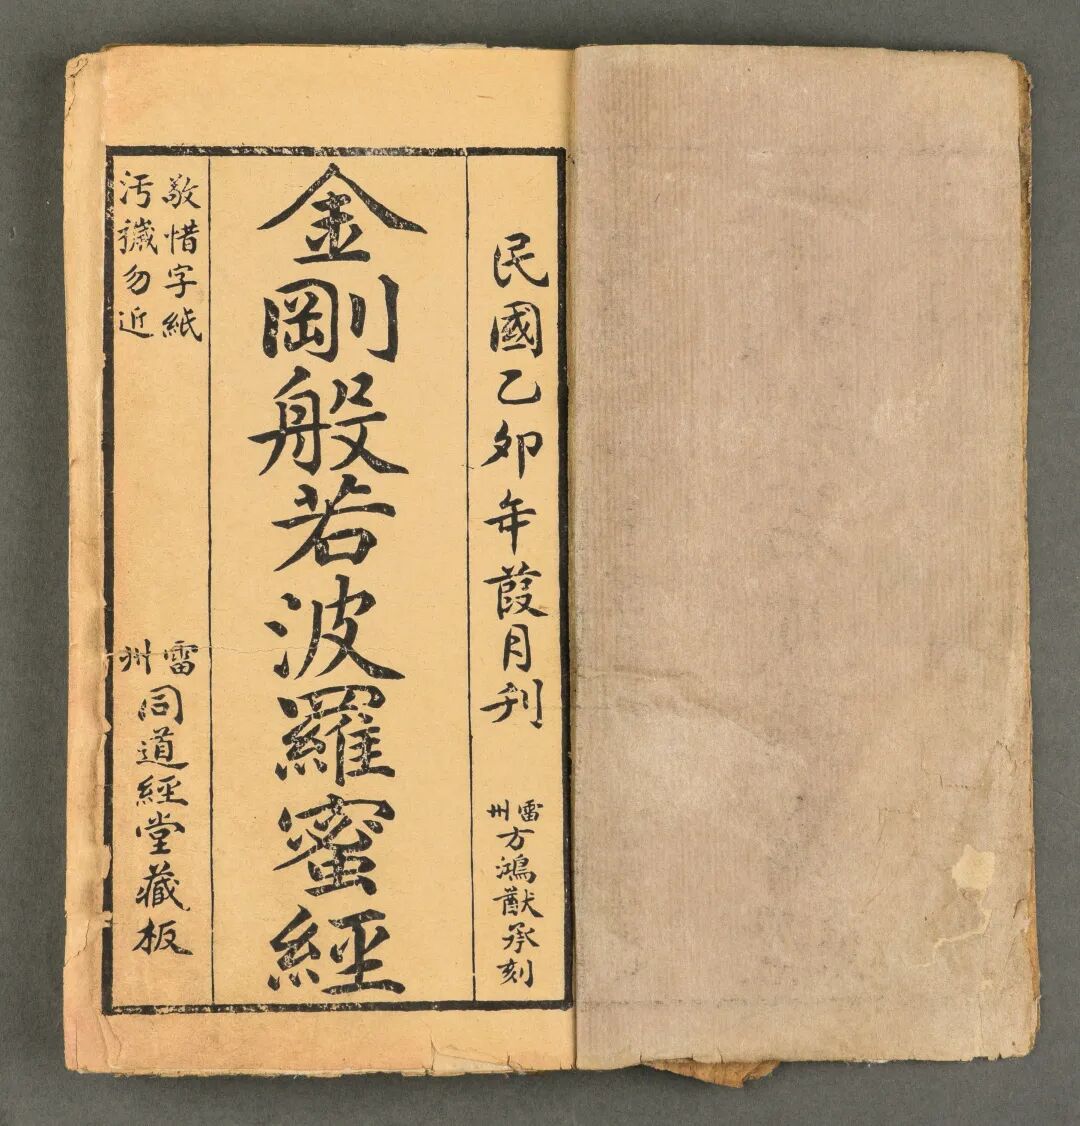 民國乙卯年葭月刊
雷州方鴻猷承刻
金剛般若波羅蜜經
敬惜字紙
汚穢勿近
雷州同道經堂藏板